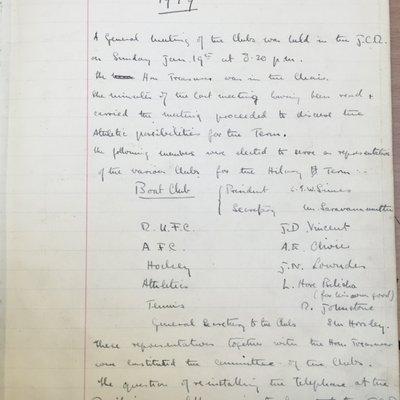 1919
A General meeting of the Clubs was held in the J.C.R.
on Sunday Jan. 19th at 8.20 p.m.
The Hon Treasurer was in the Chair.
The minutes of the last meeting having been read +
carried the meeting proceeded to discuss the
Athletic possibilities for the Term.
The following members were elected to serve as representatives
of the various Clubs for the Hilary Term :-
Boat Club President
Secretary
R.U.F.C. J.D. Vincent
A.F.C. A.E. Clivie
Hockey J.N. Lowndes
Athletics L. Hore
(for his own good)
Tennis D. Johnstone
General Secretary to the Clubs Horsley.
These representatives together with the Hon Treasurer
were constituted the Committee of the Clubs.
The question of re-installing the Telephone at the